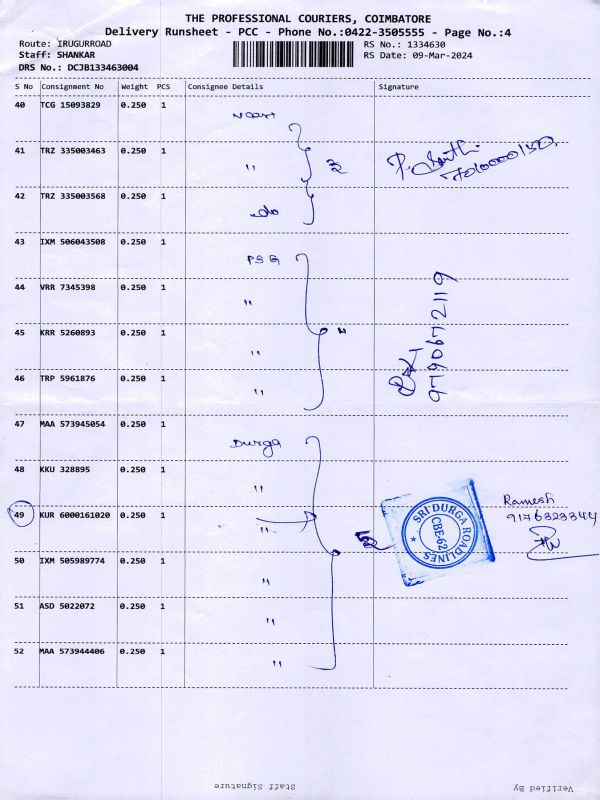 THE PROFESSIONAL COURIERS, COIMBATORE
Delivery Runsheet - PCC - Phone No.:0422-3505555 - Page No.:4
Route: IRUGURROAD
RS No.: 1334630
Staff: SHANKAR
RS Date: 09-Mar-2024
DRS No.: DCJB133463004
S No Consignment No Weight PCS Consignee Details Signature
40 TCG 15093829 0.250 1
41 TRZ 335003463 0.250 1 "
42 TRZ 335003568 0.250 1 do
43 IXM 506043508 0.250 1 PSG
44 VRR 7345398 0.250 1 "
45 KRR 5260893 0.250 1 "
46 TRP 5961876 0.250 1 "
9790672119
47 MAA 573945054 0.250 1 Durga
48 KKU 328895 0.250 1 "
49 KUR 6000161020 0.250 1 "
SRI DURGA ROADLINES
CBE-62
Ramesh
9176323344
50 IXM 505989774 0.250 1 "
51 ASD 5022072 0.250 1 "
52 MAA 573944406 0.250 1 "
Staff Signature
Verified By